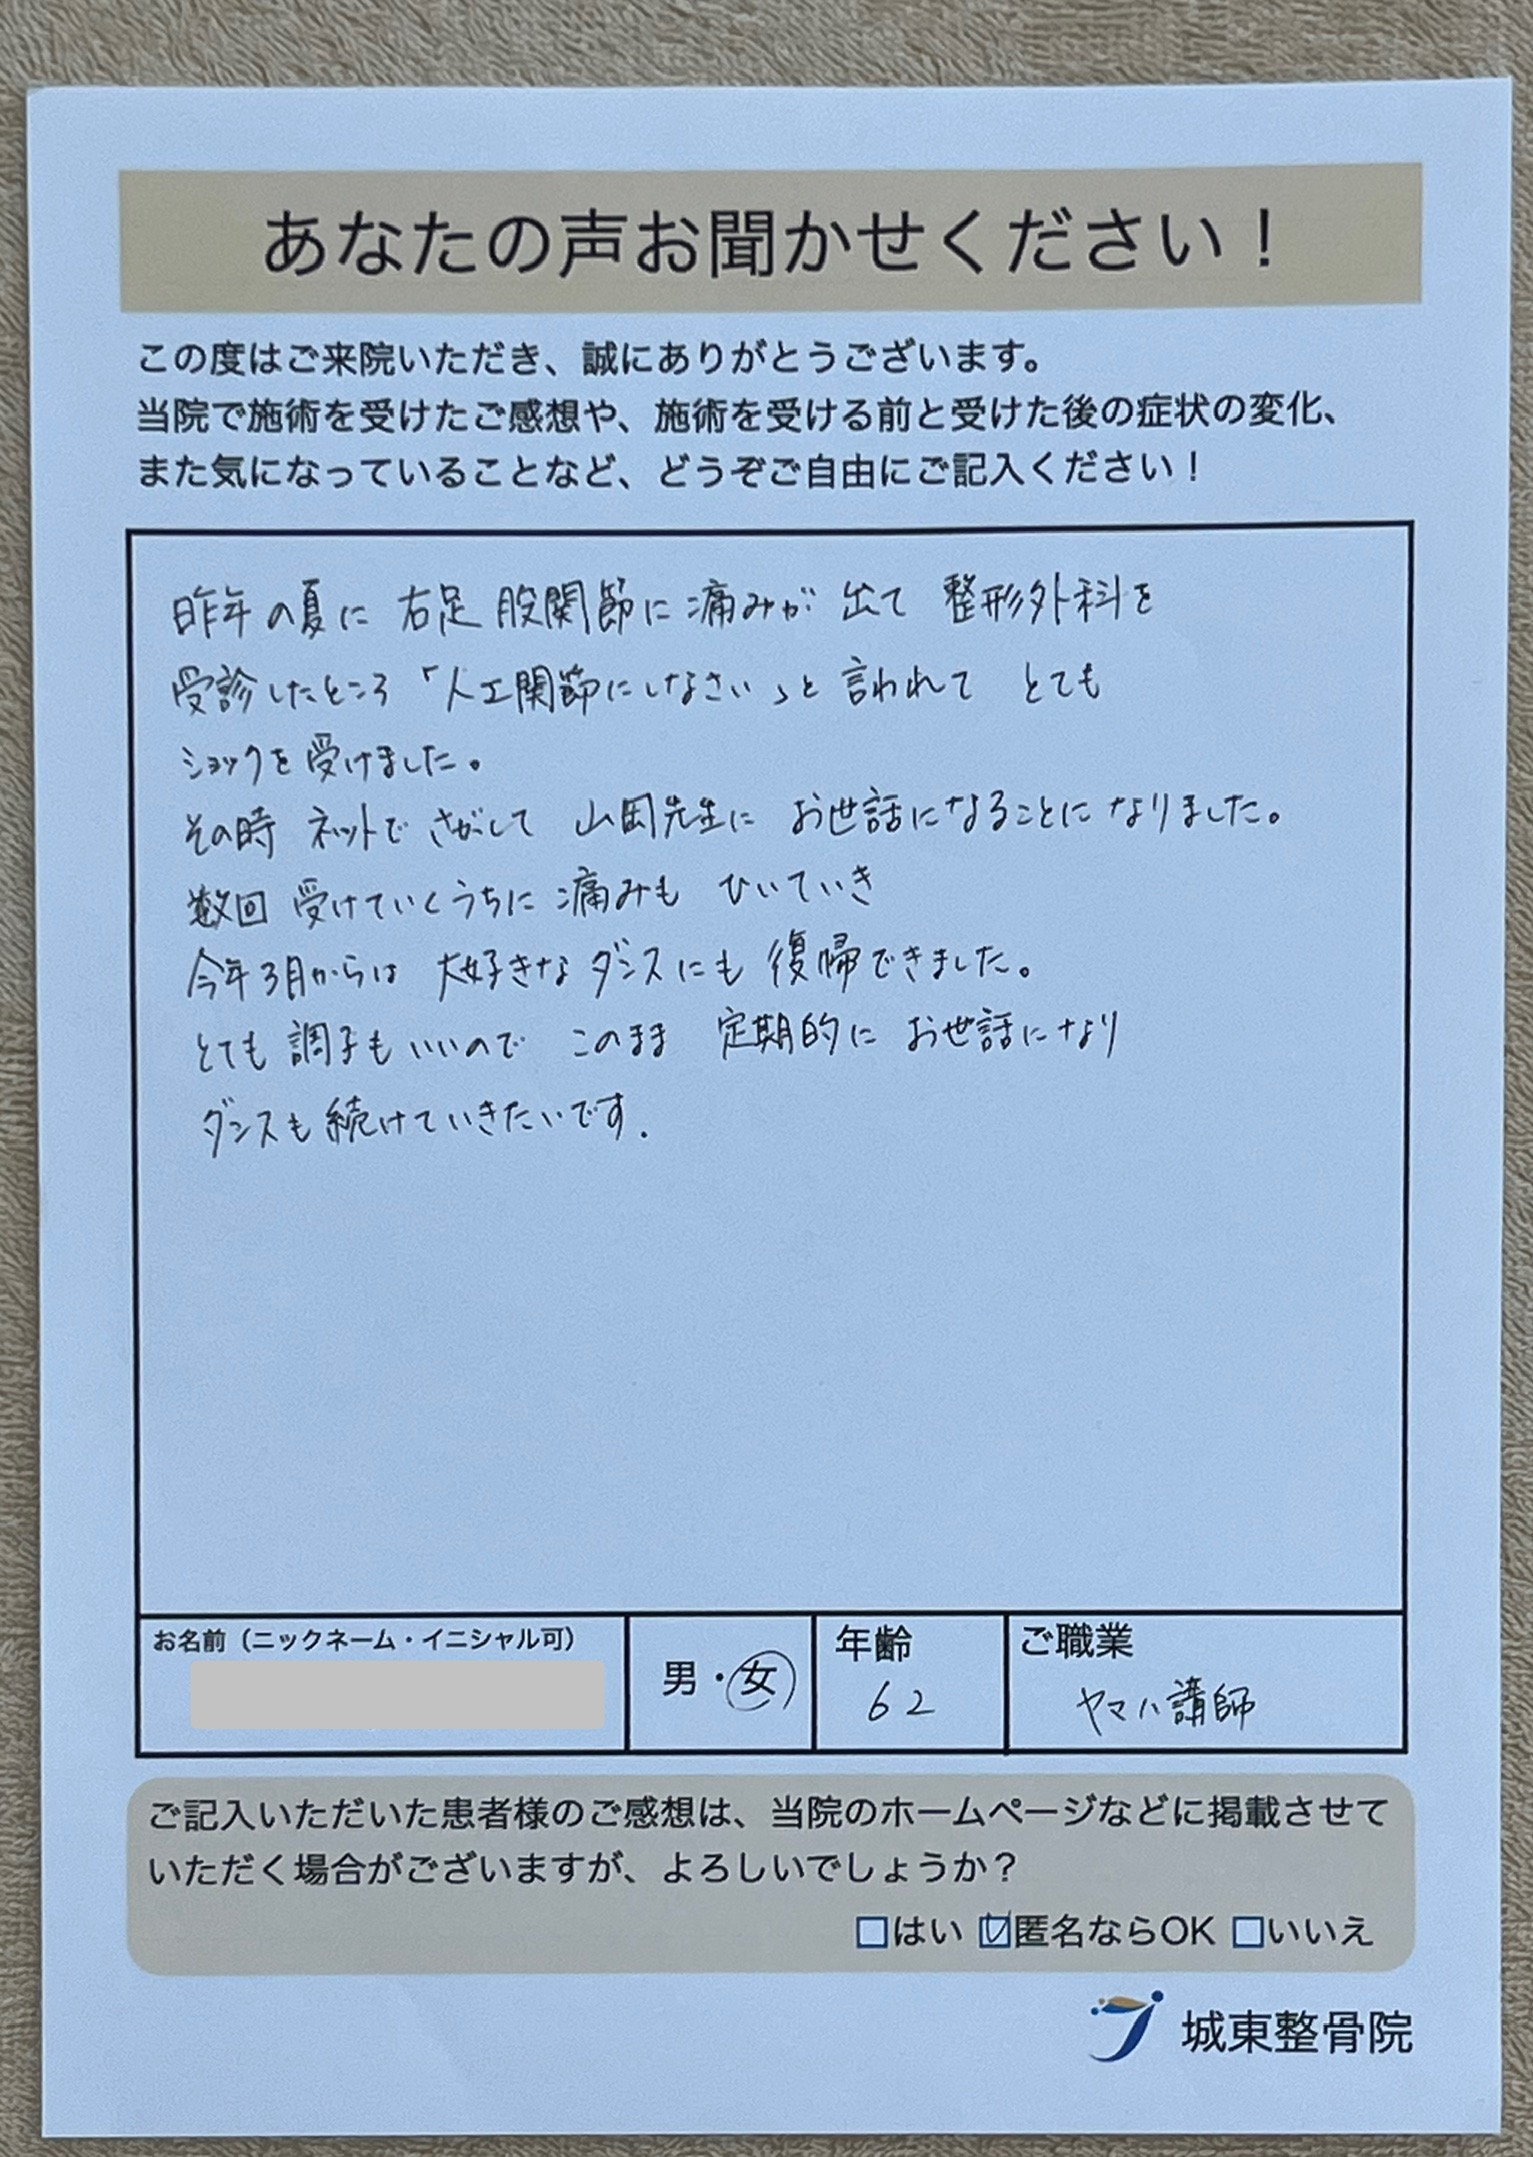 あなたの声お聞かせください！
この度はご来院いただき、誠にありがとうございます。
当院で施術を受けたご感想や、施術を受ける前と受けた後の症状の変化、
また気になっていることなど、どうぞご自由にご記入ください！
昨年の夏に 右足 股関節に痛みが 出て 整形外科を
受診したところ「人工関節にしなさい」と 言われて とても
ショックを受けました。
その時 ネットで さがして 山岡先生に お世話になることに なりました。
数回 受けていくうちに 痛みも ひいていき
今年3月からは 大好きな ダンスにも 復帰できました。
とても 調子もいいので このまま 定期的に お世話になり
ダンスも続けていきたいです.
お名前（ニックネーム・イニシャル可）
男・女
年齢
62
ご職業
ヤマハ講師
ご記入いただいた患者様のご感想は、当院のホームページなどに掲載させて
いただく場合がございますが、よろしいでしょうか？
□はい ☑匿名ならOK □いいえ
城東整骨院